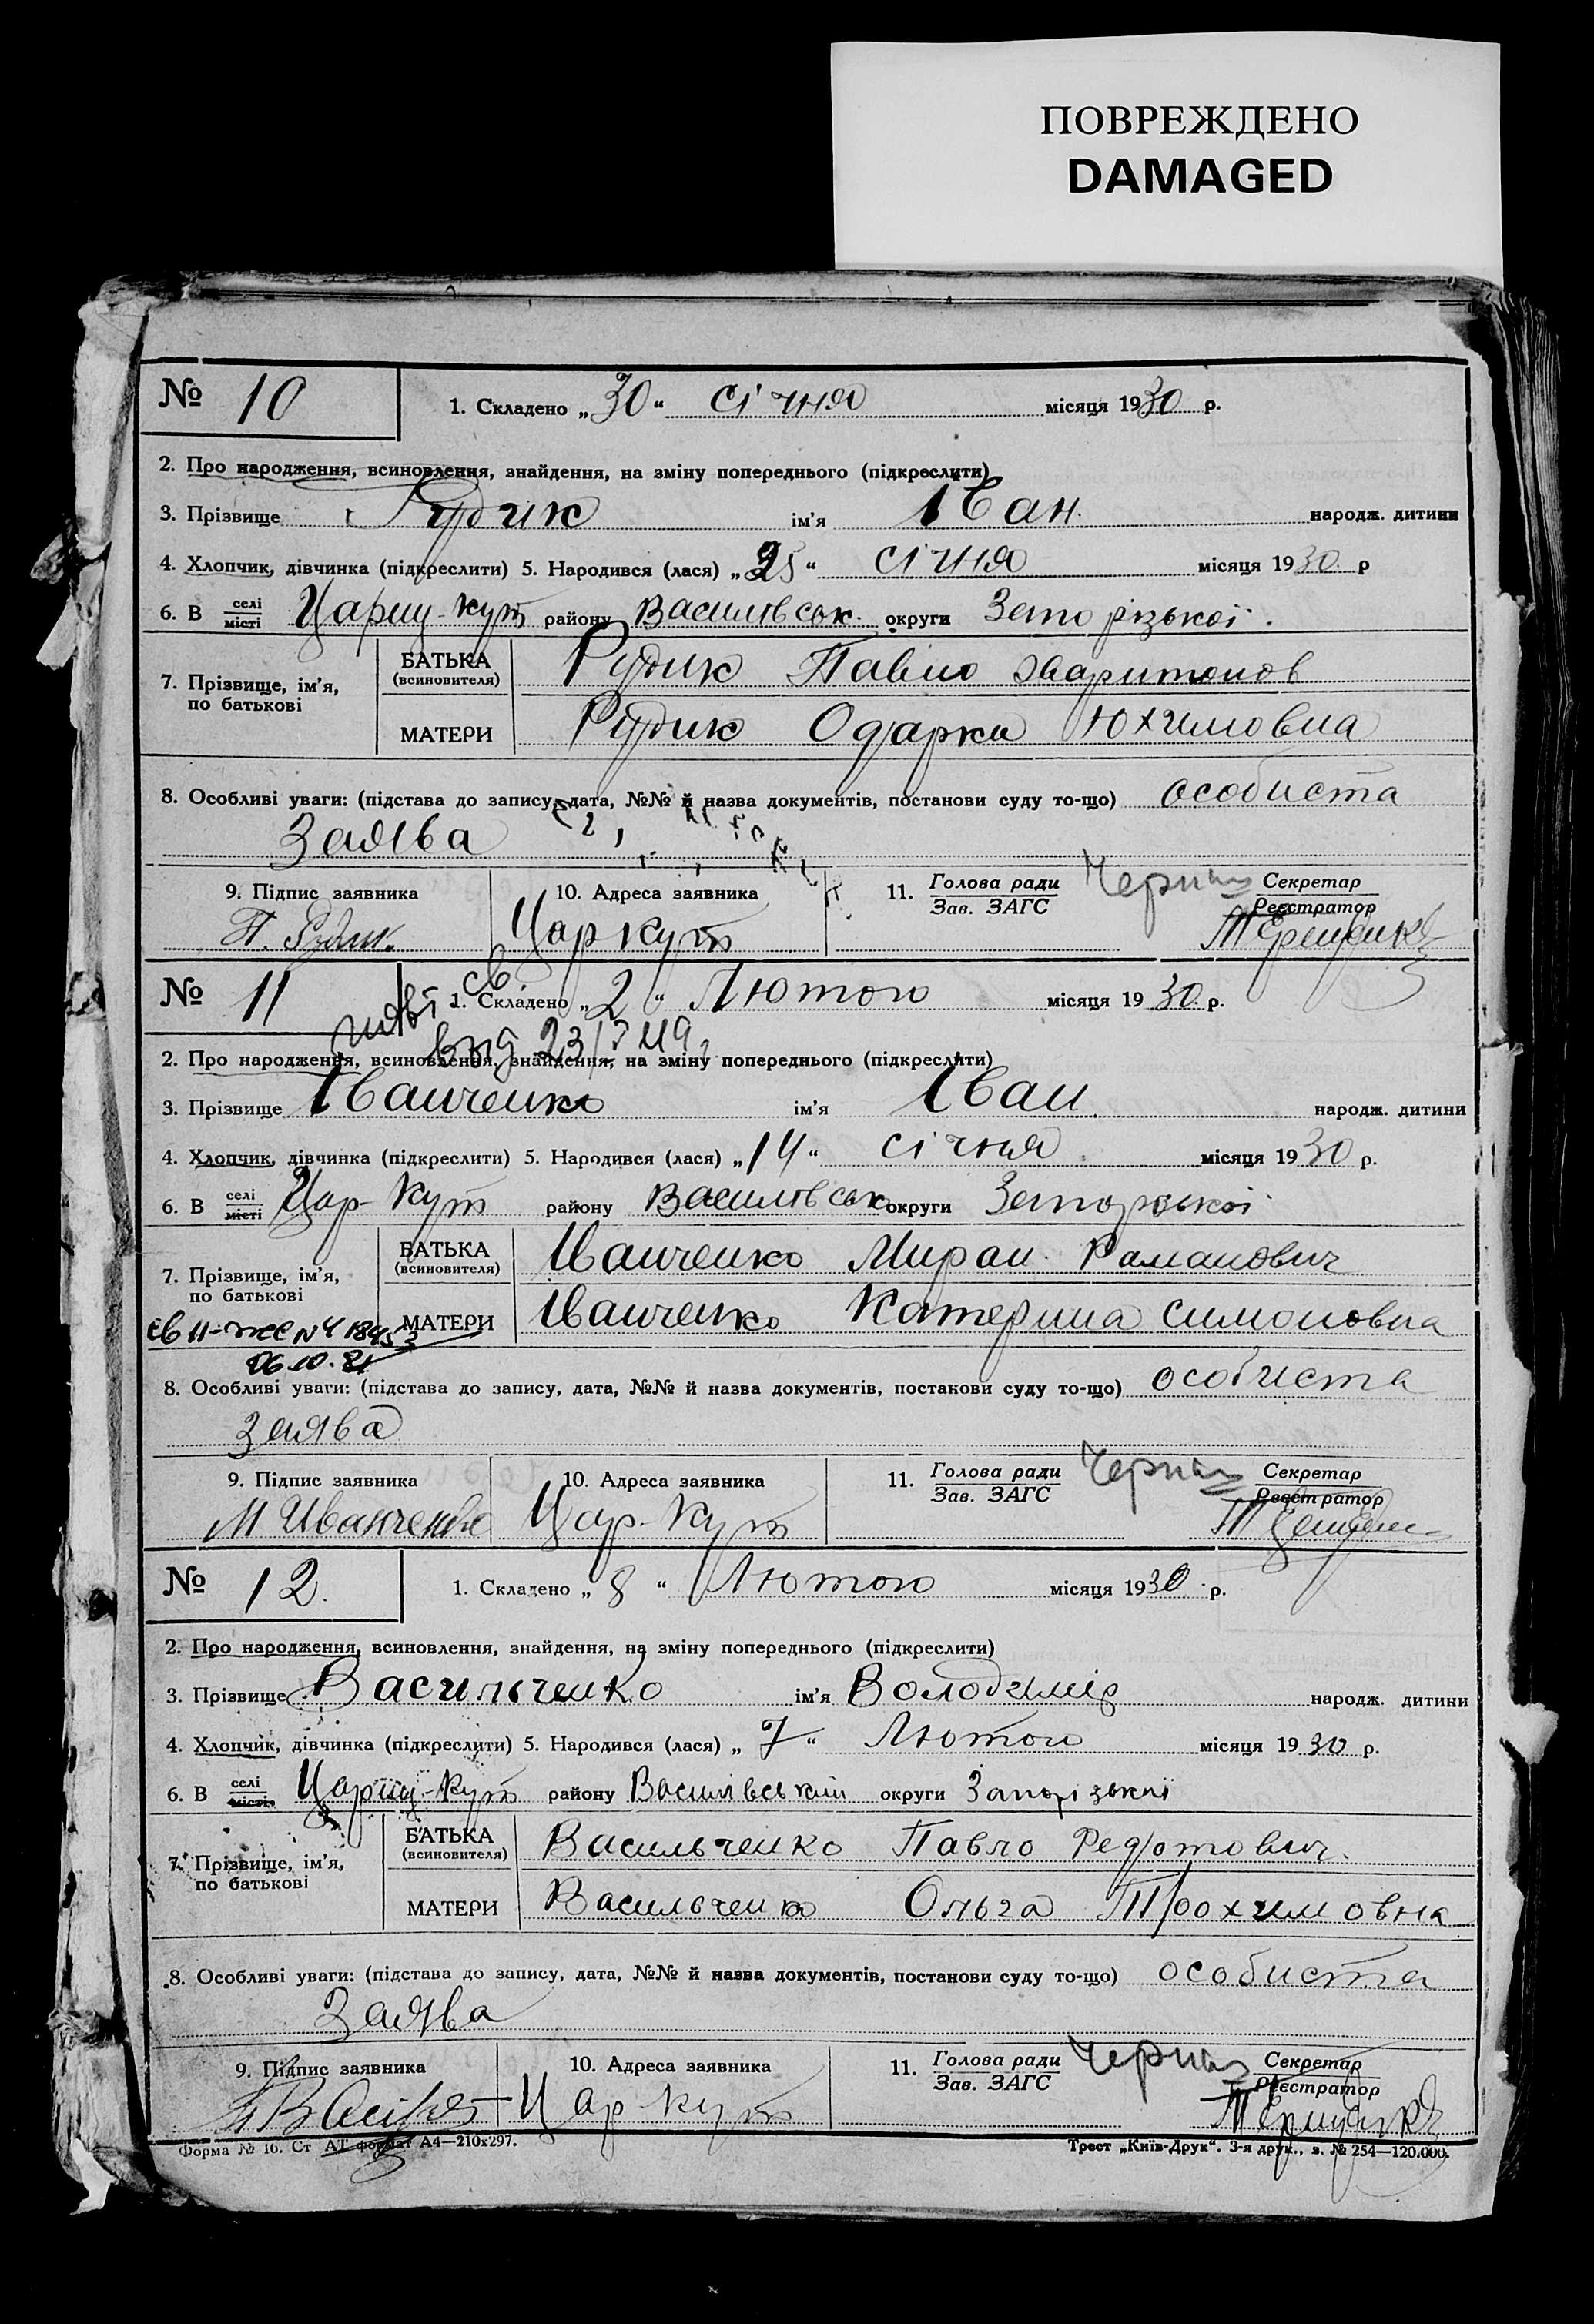 ПОВРЕЖДЕНО
DAMAGED
№ 10
1. Складено „30“ січня місяця 1930 р.
2. Про народження, всиновлення, знайдення, на зміну попереднього (підкреслити)
3. Прізвище Рудик ім'я Іван народж. дитини
4. Хлопчик, дівчинка (підкреслити) 5. Народився (лася) „25“ січня місяця 1930 р
6. В селі місті Цариц-Кут району Василівськ. округи Запорізької.
7. Прізвище, ім'я, по батькові
БАТЬКА (всиновителя) Рудик Павло Харитонов
МАТЕРИ Рудик Одарка Юхимовна
8. Особливі уваги: (підстава до запису, дата, №№ й назва документів, постанови суду то-що) особиста
заява
9. Підпис заявника 10. Адреса заявника 11. Голова ради Зав. ЗАГС Секретар Реєстратор
П. Рудик. Цар кут
№ 11
1. Складено „2“ Лютого місяця 1930 р.
2. Про народження, всиновлення, знайдення, на зміну попереднього (підкреслити)
3. Прізвище Іванченко ім'я Іван народж. дитини
4. Хлопчик, дівчинка (підкреслити) 5. Народився (лася) „14“ січня місяця 1930 р.
6. В селі місті Цар-Кут району Василівськ округи Запорізької
7. Прізвище, ім'я, по батькові
БАТЬКА (всиновителя) Іванченко Мирон Романович
МАТЕРИ Іванченко Катерина Симоновна
06.10.
8. Особливі уваги: (підстава до запису, дата, №№ й назва документів, постанови суду то-що) особиста
заява
9. Підпис заявника 10. Адреса заявника 11. Голова ради Зав. ЗАГС Секретар Реєстратор
М Иванченко Цар-Кут
№ 12.
1. Складено „8“ Лютого місяця 1930 р.
2. Про народження, всиновлення, знайдення, на зміну попереднього (підкреслити)
3. Прізвище Васильченко ім'я Володимір народж. дитини
4. Хлопчик, дівчинка (підкреслити) 5. Народився (лася) „7“ Лютого місяця 1930 р.
6. В селі місті Цариц-Кут району Василівський округи Запорізької
7. Прізвище, ім'я, по батькові
БАТЬКА (всиновителя) Васильченко Павло Федотович.
МАТЕРИ Васильченко Ольга Трохимовна
8. Особливі уваги: (підстава до запису, дата, №№ й назва документів, постанови суду то-що) особиста
заява
9. Підпис заявника 10. Адреса заявника 11. Голова ради Зав. ЗАГС Секретар Реєстратор
Цар-кут
Форма № 16. Ст АТ формат А4—210х297. Трест „Київ-Друк“. 3-я друк., з. № 254—120.000.